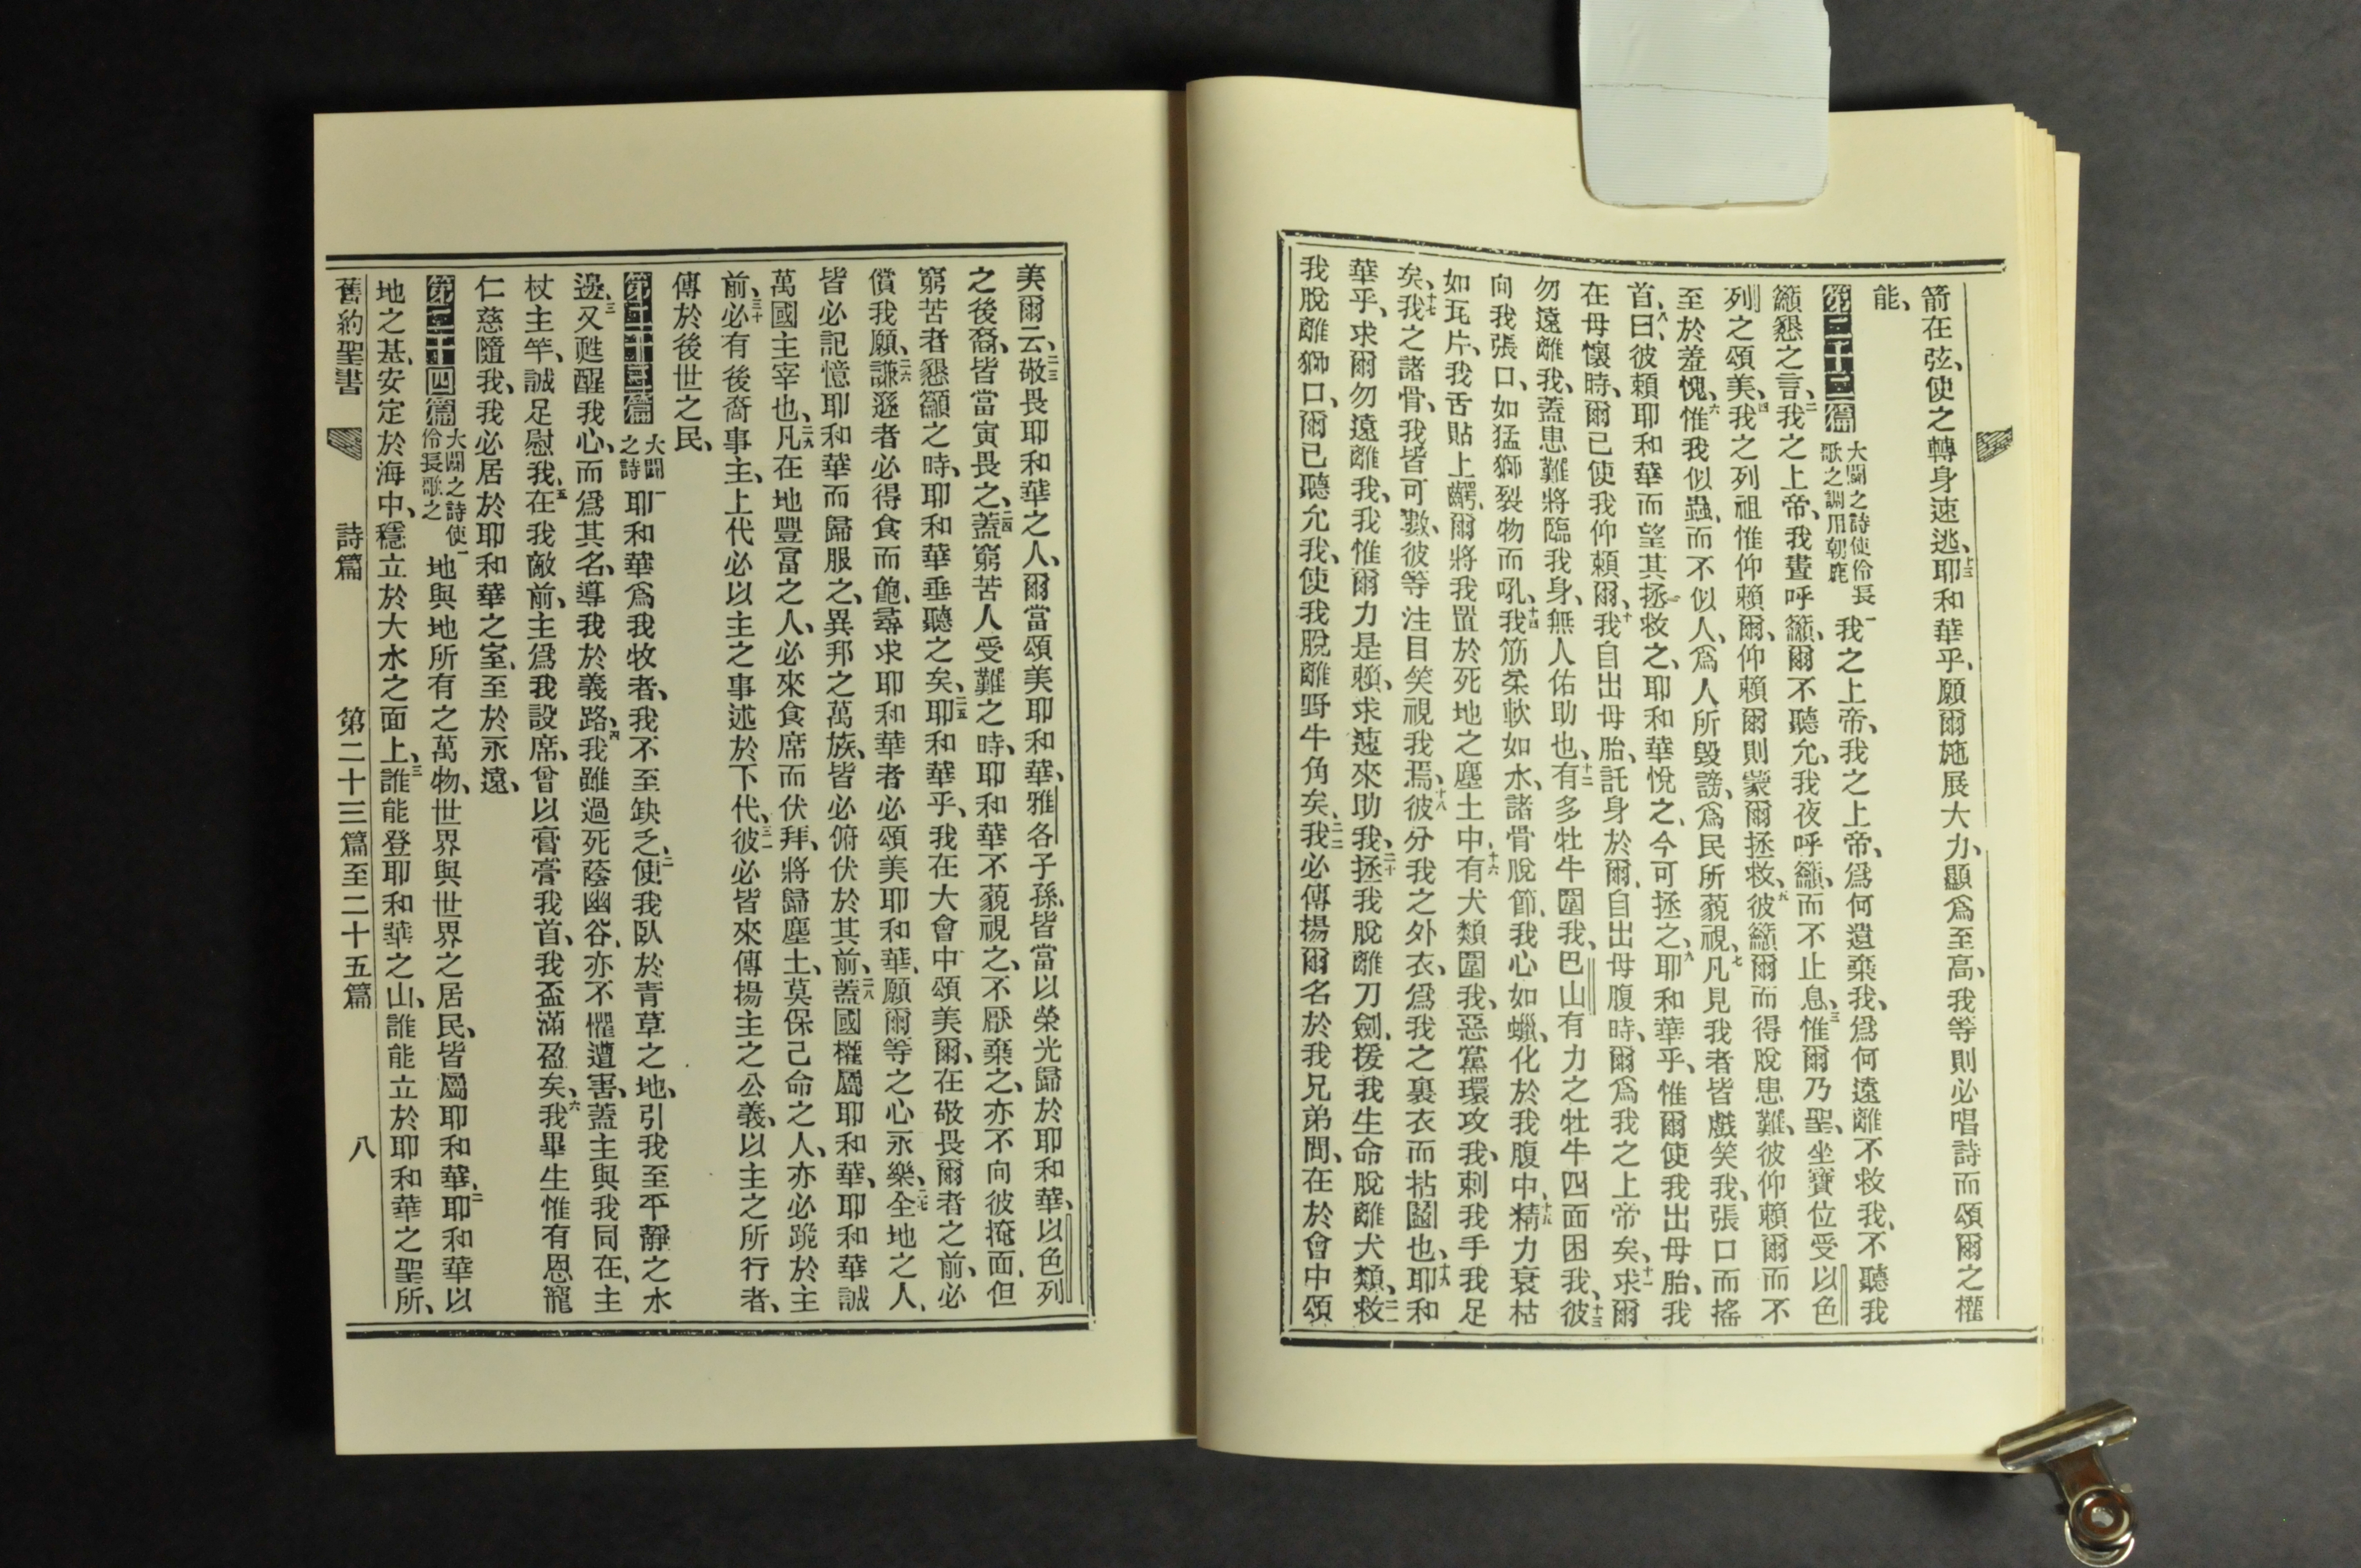 箭在弦、使之轉身速逃、十三耶和華乎、願爾施展大力、顯爲至高、我等則必唱詩而頌爾之權
能、
第二十二篇 大闢之詩使伶長歌之調用朝鹿 一我之上帝、我之上帝、爲何遺棄我、爲何遠離不救我、不聽我
籲懇之言、二我之上帝、我晝呼籲、爾不聽允、我夜呼籲、而不止息、三惟爾乃聖、坐寶位受以色
列之頌美、四我之列祖惟仰賴爾、仰賴爾則蒙爾拯救、五彼籲爾而得脫患難、彼仰賴爾而不
至於羞愧、六惟我似蟲、而不似人、爲人所毀謗、爲民所藐視、七凡見我者皆戲笑我、張口而搖
首、八曰、彼賴耶和華而望其拯救之、耶和華悅之、今可拯之、九耶和華乎、惟爾使我出母胎、我
在母懷時、爾已使我仰賴爾、十我自出母胎、託身於爾、自出母腹時、爾爲我之上帝矣、十一求爾
勿遠離我、蓋患難將臨我身、無人佑助也、十二有多牡牛圍我、巴山有力之牡牛四面困我、十三彼
向我張口、如猛獅裂物而吼、十四我筋柔軟如水、諸骨脫節、我心如蠟、化於我腹中、十五精力衰枯
如瓦片、我舌貼上齶、爾將我置於死地之塵土中、十六有犬類圍我、惡黨環攻我、刺我手我足
矣、十七我之諸骨、我皆可數、彼等注目笑視我焉、十八彼分我之外衣、爲我之裏衣而拈鬮也、十九耶和
華乎、求爾勿遠離我、我惟爾力是賴、求速來助我、二十拯我脫離刀劍、援我生命脫離犬類、二一救
我脫離獅口、爾已聽允我、使我脫離野牛角矣、二二我必傳揚爾名於我兄弟間、在於會中頌
美爾云、二三敬畏耶和華之人、爾當頌美耶和華、雅各子孫、皆當以榮光歸於耶和華、以色列
之後裔、皆當寅畏之、二四蓋窮苦人受難之時、耶和華不藐視之、不厭棄之、亦不向彼掩面、但
窮苦者懇籲之時、耶和華垂聽之矣、二五耶和華乎、我在大會中頌美爾、在敬畏爾者之前、必
償我願、二六謙遜者必得食而飽、尋求耶和華者必頌美耶和華、願爾等之心永樂、二七全地之人、
皆必記憶耶和華而歸服之、異邦之萬族、皆必俯伏於其前、二八蓋國權屬耶和華、耶和華誠
萬國主宰也、二九凡在地豐富之人、必來食席而伏拜、將歸塵土、莫保己命之人、亦必跪於主
前、三十必有後裔事主、上代必以主之事述於下代、三一彼必皆來傳揚主之公義、以主之所行者、
傳於後世之民、
第二十三篇 大闢之詩 一耶和華爲我牧者、我不至缺乏、二使我臥於青草之地、引我至平靜之水
邊、三又甦醒我心、而爲其名、導我於義路、四我雖過死蔭幽谷、亦不懼遭害、蓋主與我同在、主
杖主竿、誠足慰我、五在我敵前、主爲我設席、曾以膏膏我首、我盃滿盈矣、六我畢生惟有恩寵
仁慈隨我、我必居於耶和華之室、至於永遠、
第二十四篇 大闢之詩使伶長歌之 一地與地所有之萬物、世界與世界之居民、皆屬耶和華、二耶和華以
地之基、安定於海中、穩立於大水之面上、三誰能登耶和華之山、誰能立於耶和華之聖所、
舊約聖書 詩篇 第二十三篇至二十五篇 八